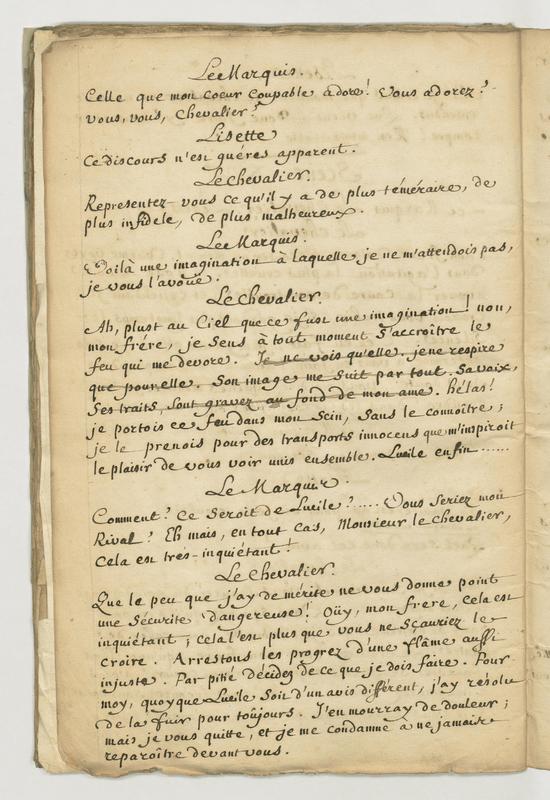 Le Marquis.
Celle que mon coeur coupable adore! Vous adorez?
vous, vous, Chevalier?
Lisette
Ce discours n'est guéres apparent.
Le Chevalier.
Representez-vous ce qu'il y a de plus téméraire, de
plus infidele, de plus malheureux.
Le Marquis.
Voilà une imagination à laquelle je ne m'attendois pas,
je vous l'avoüe.
Le Chevalier.
Ah, plust au Ciel que ce fust une imagination! non,
mon frére, je sens à tout moment s'accroître le
feu qui me devore. Je ne vois qu'elle. je ne respire
que pour elle. Son image me suit par tout. Sa voix,
Ses traits, sont gravez au fond de mon ame. hélas!
je portois ce feu dans mon Sein, sans le connoître;
je le prenois pour des transports innocens que m'inspiroit
le plaisir de vous voir unis ensemble. Lucile enfin ......
Le Marquis.
Comment? Ce Seroit de Lucile? ..... Vous Seriez mon
Rival? Eh mais, en tout cas, Monsieur le Chevalier,
Cela est trés-inquiétant!
Le Chevalier.
Que le peu que j'ay de mérite ne vous donne point
une Sécurité dangereuse! Oüy, mon frere, Cela est
inquiétant; cela l'est plus que vous ne Sçauriez le
croire. Arrestons les progrez d'une flâme aussi
injuste. Par pitié décidez de ce que je dois faire. Pour
moy, quoyque Lucile Soit d'un avis différent, j'ay résolu
de la fuir pour toûjours. J'en mourray de douleur;
mais je vous quitte, et je me condamne à ne jamais
reparoître devant vous.